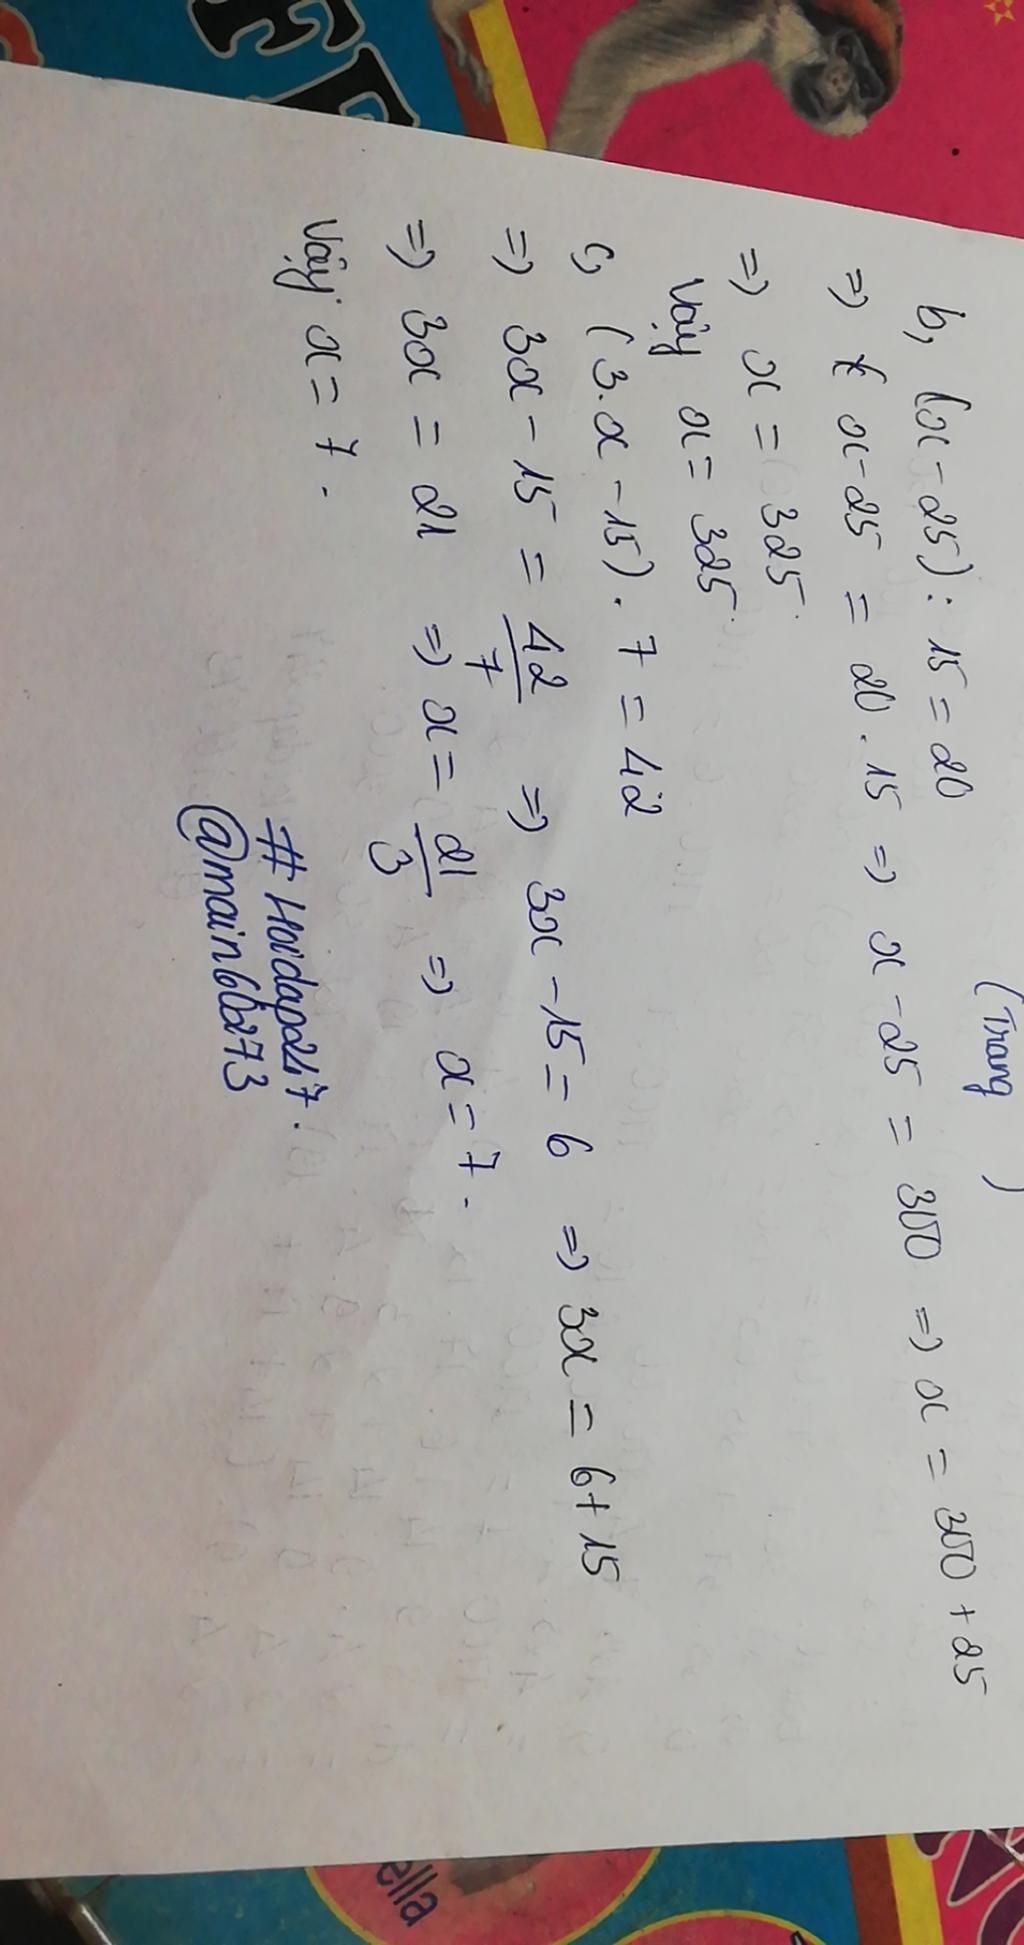 (Trang )
b, (x - 25) : 15 = 20
=> x - 25 = 20 . 15 => x - 25 = 300 => x = 300 + 25
=> x = 325.
Vậy x = 325.
c, (3.x - 15) . 7 = 42
=> 3x - 15 = 42/7 => 3x - 15 = 6 => 3x = 6 + 15
=> 3x = 21 => x = 21/3 => x = 7.
Vậy x = 7.
#Hoidap247.
@main60273
ella